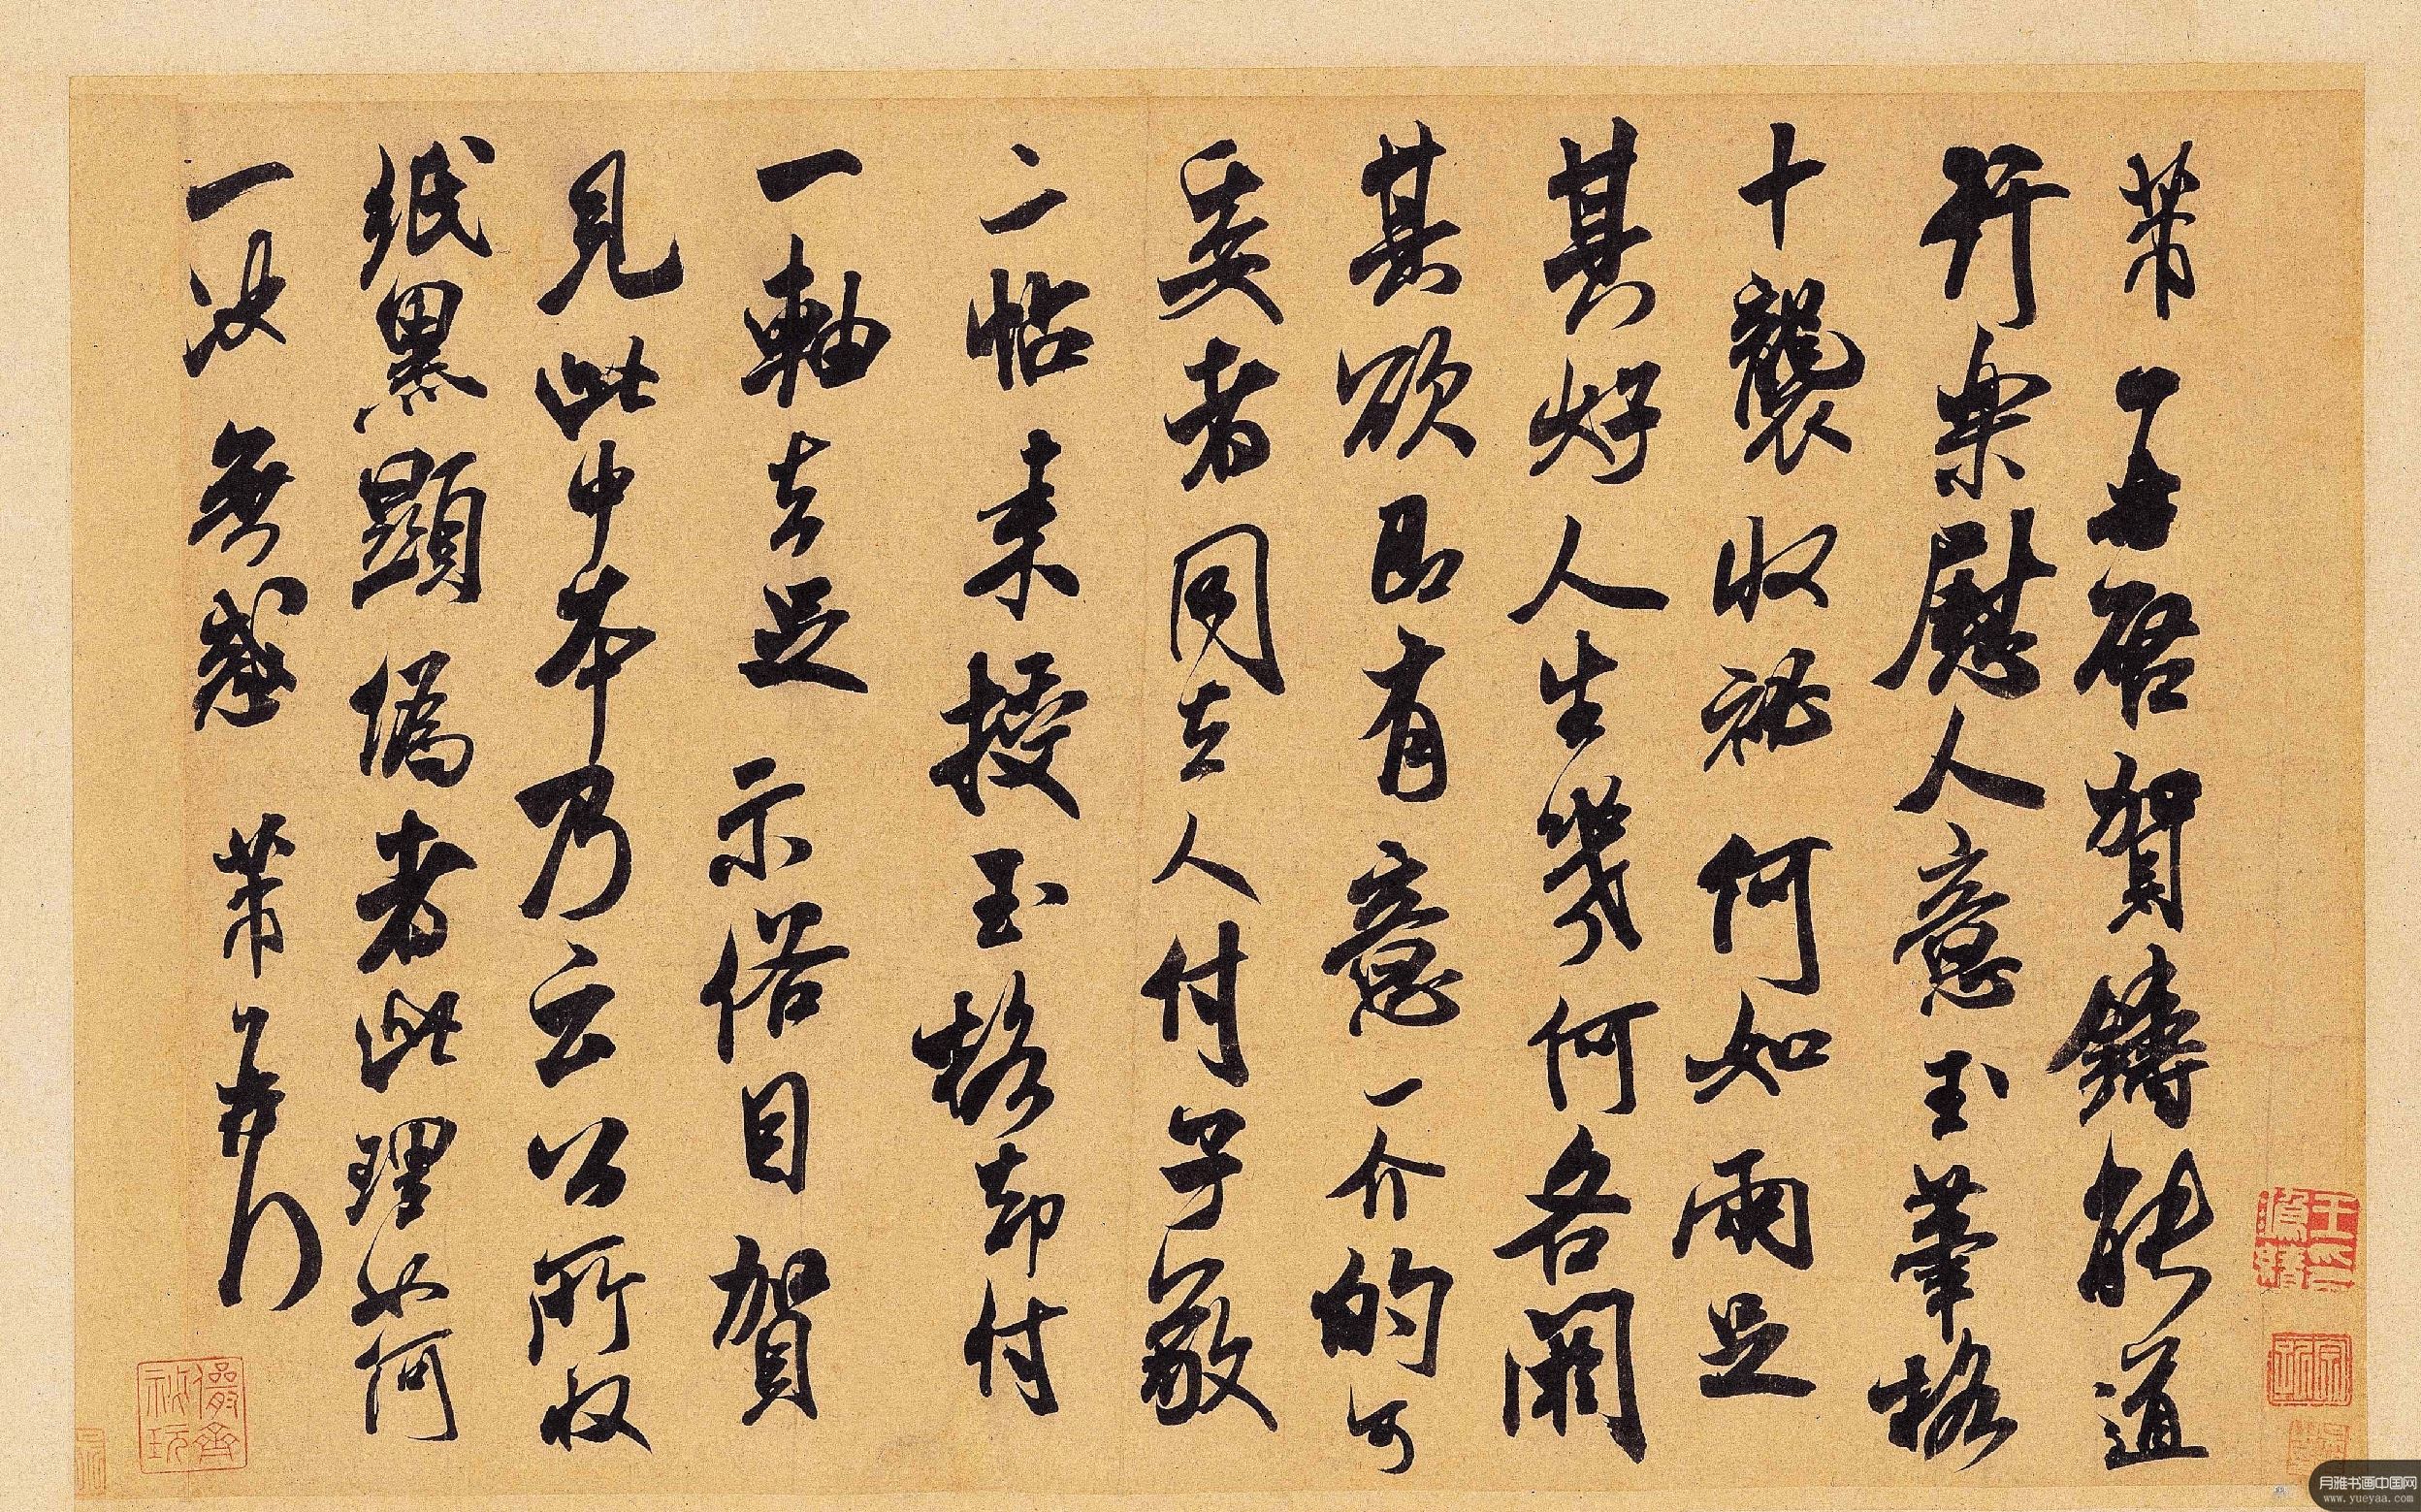 芾頓首再啓賀鑄能道
行樂慰人意玉筆格
十襲收秘何如兩足
其好人生幾何各閼
其欲即有意一介的可
委者同去人付子敬
二帖來授玉格却付
一軸去足示俗目賀
見此中本乃云公所收
紙黑顯僞者此理如何
一決無惑芾頓首
儼齋秘玩
月雅书画中国网
www.yueyaa.com